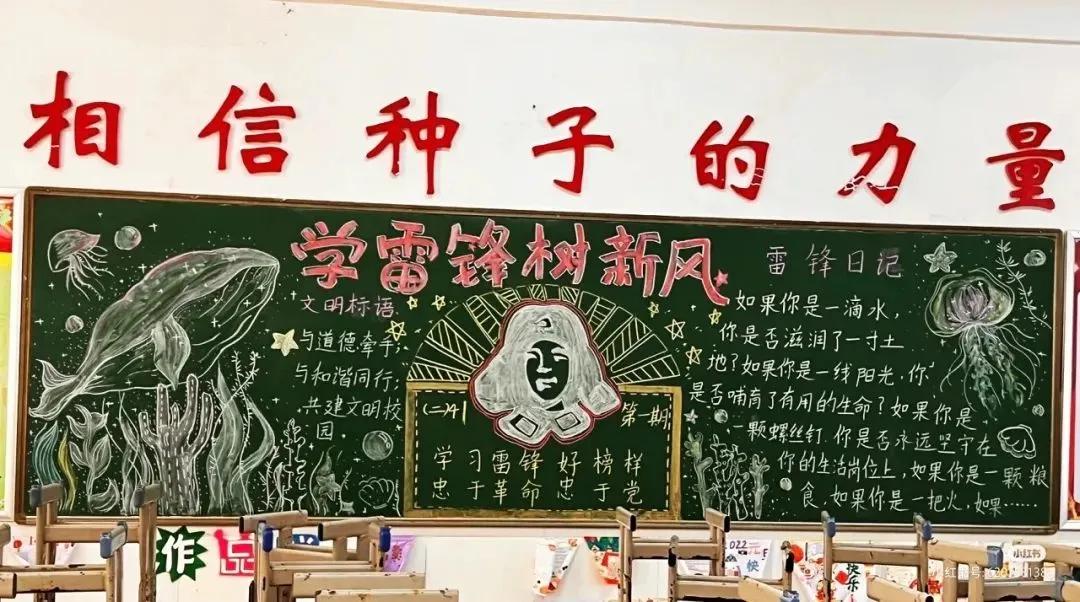 相信种子的力量
学雷锋树新风
文明标语
与道德牵手,
与和谐同行,
共建文明校
园
(二4)
第一期
学习雷锋好榜样
忠于革命忠于党
雷锋日记
如果你是一滴水,
你是否滋润了一寸土
地?如果你是一线阳光,你
是否哺育了有用的生命?如果你是
一颗螺丝钉.你是否永远坚守在
你的生活岗位上,如果你是一颗粮
食,如果你是一把火,如果……
作品
小红书